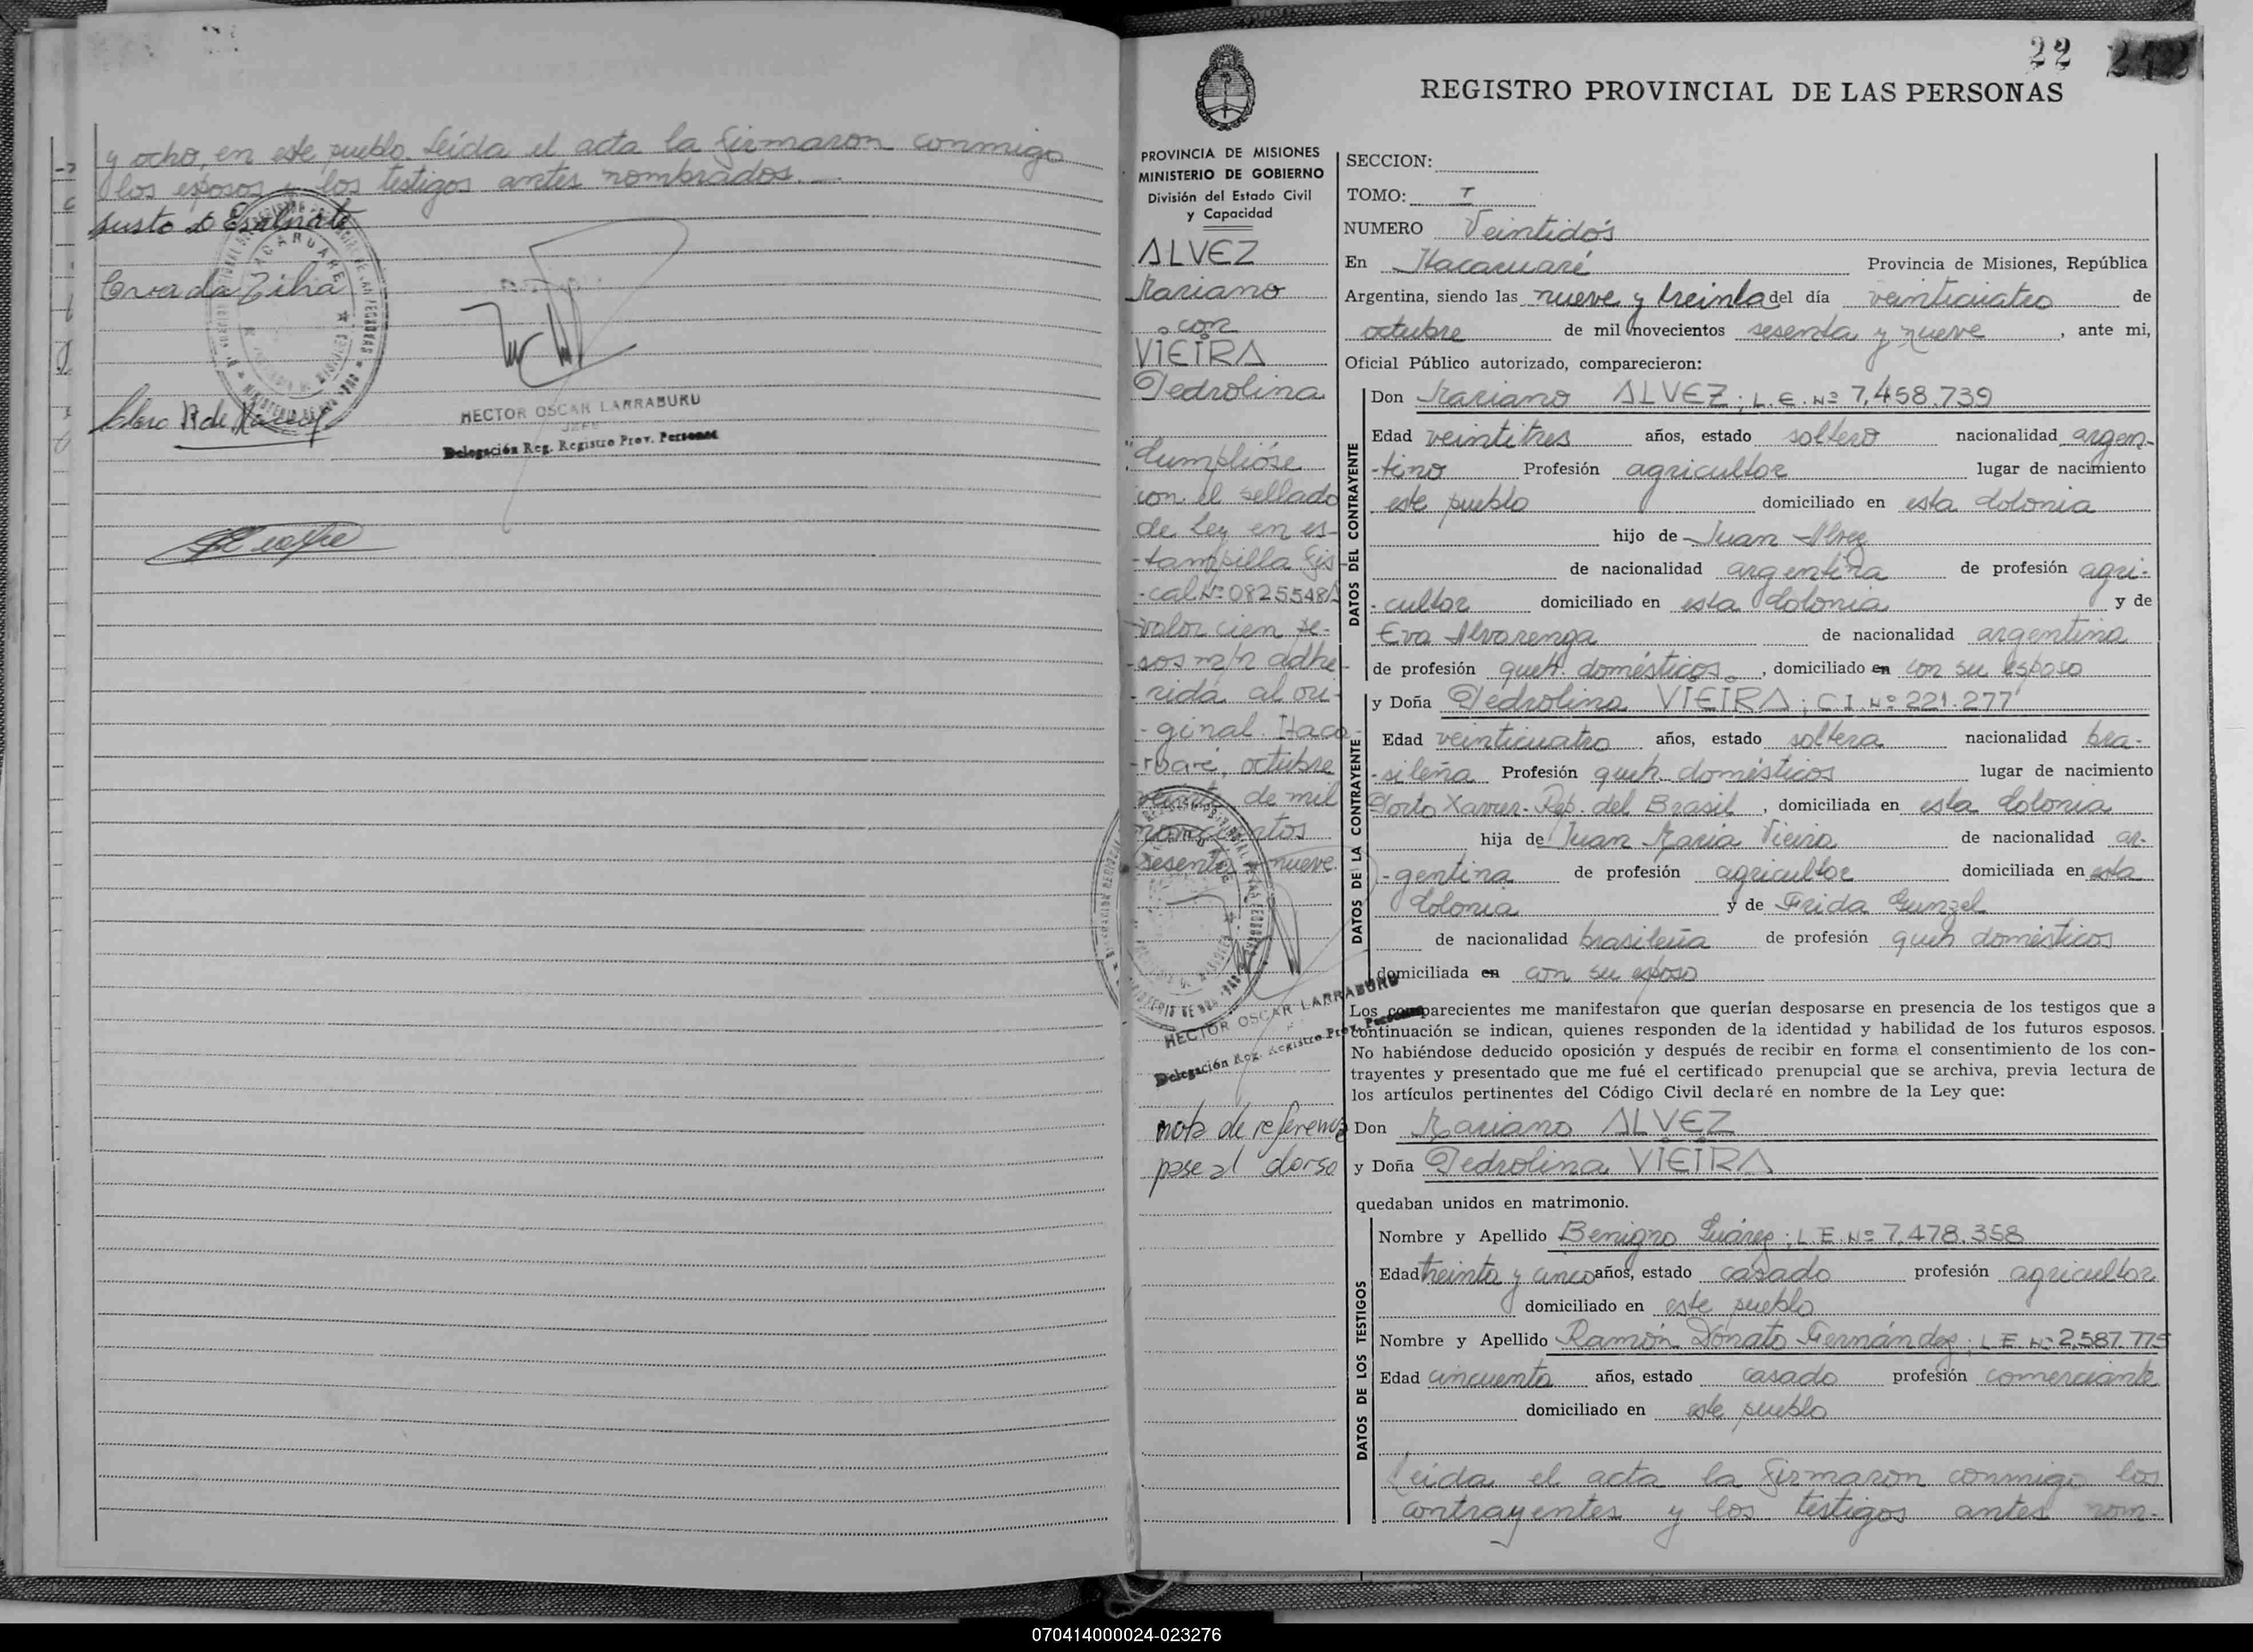 y ocho, en este pueblo. Leída el acta la firmaron conmigo
los esposos y los testigos antes nombrados.
HECTOR OSCAR LARRABURU
JEFE
Delegación Reg. Registro Prov. Personas
22
REGISTRO PROVINCIAL DE LAS PERSONAS
PROVINCIA DE MISIONES
MINISTERIO DE GOBIERNO
División del Estado Civil
y Capacidad
ALVEZ
Mariano
con
VIEIRA
Pedrolina
"Cumplióse
con el sellado
de Ley en es-
-tampilla fis-
-cal Nº 0825548A
-valor cien pe-
-sos m/n adhe-
-rida al ori-
-ginal. Itaca-
-ruaré, octubre
de mil
novecientos
sesenta y nueve.
HECTOR OSCAR LARRABURU
Delegación Reg. Registro Prov. Personas
nota de referencia
pase al dorso
SECCION:
TOMO: I
NUMERO Veintidós
En Itacaruaré Provincia de Misiones, República
Argentina, siendo las nueve y treinta del día veinticuatro de
octubre de mil novecientos sesenta y nueve, ante mi,
Oficial Público autorizado, comparecieron:
DATOS DEL CONTRAYENTE
Don Mariano ALVEZ; L.E. Nº 7,458.739
Edad veintitres años, estado soltero nacionalidad argen-
-tino Profesión agricultor lugar de nacimiento
este pueblo domiciliado en esta Colonia
hijo de Juan Alvez
de nacionalidad argentina de profesión agri-
-cultor domiciliado en esta Colonia y de
Eva Alvarenga de nacionalidad argentina
de profesión queh. domésticos, domiciliado en con su esposo
DATOS DE LA CONTRAYENTE
y Doña Pedrolina VIEIRA; C.I. Nº 221.277
Edad veinticuatro años, estado soltera nacionalidad bra-
-sileña Profesión queh. domésticos lugar de nacimiento
Porto Xavier-Rep. del Brasil, domiciliada en esta Colonia
hija de Juan María Vieira de nacionalidad ar-
-gentina de profesión agricultor domiciliada en esta
Colonia y de Frida Gunzel
de nacionalidad brasileña de profesión queh domésticos
domiciliada en con su esposo
Los comparecientes me manifestaron que querían desposarse en presencia de los testigos que a
continuación se indican, quienes responden de la identidad y habilidad de los futuros esposos.
No habiéndose deducido oposición y después de recibir en forma el consentimiento de los con-
trayentes y presentado que me fué el certificado prenupcial que se archiva, previa lectura de
los artículos pertinentes del Código Civil declaré en nombre de la Ley que:
Don Mariano ALVEZ
y Doña Pedrolina VIEIRA
quedaban unidos en matrimonio.
DATOS DE LOS TESTIGOS
Nombre y Apellido Benigno Suárez; L.E. Nº 7.478.358
Edad treinta y cinco años, estado casado profesión agricultor
domiciliado en este pueblo
Nombre y Apellido Ramón Donato Fernández; L.E. Nº 2.587.775
Edad cincuenta años, estado casado profesión comerciante
domiciliado en este pueblo
Leída el acta la firmaron conmigo los
contrayentes y los testigos antes nom-
070414000024-023276